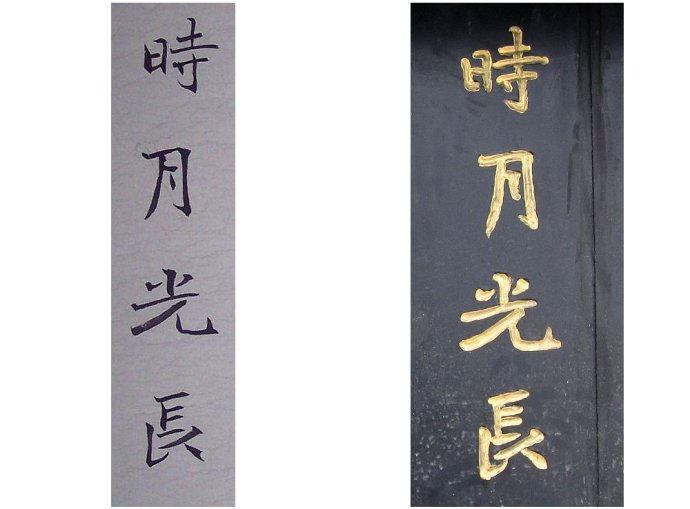 時月光長
時月光長